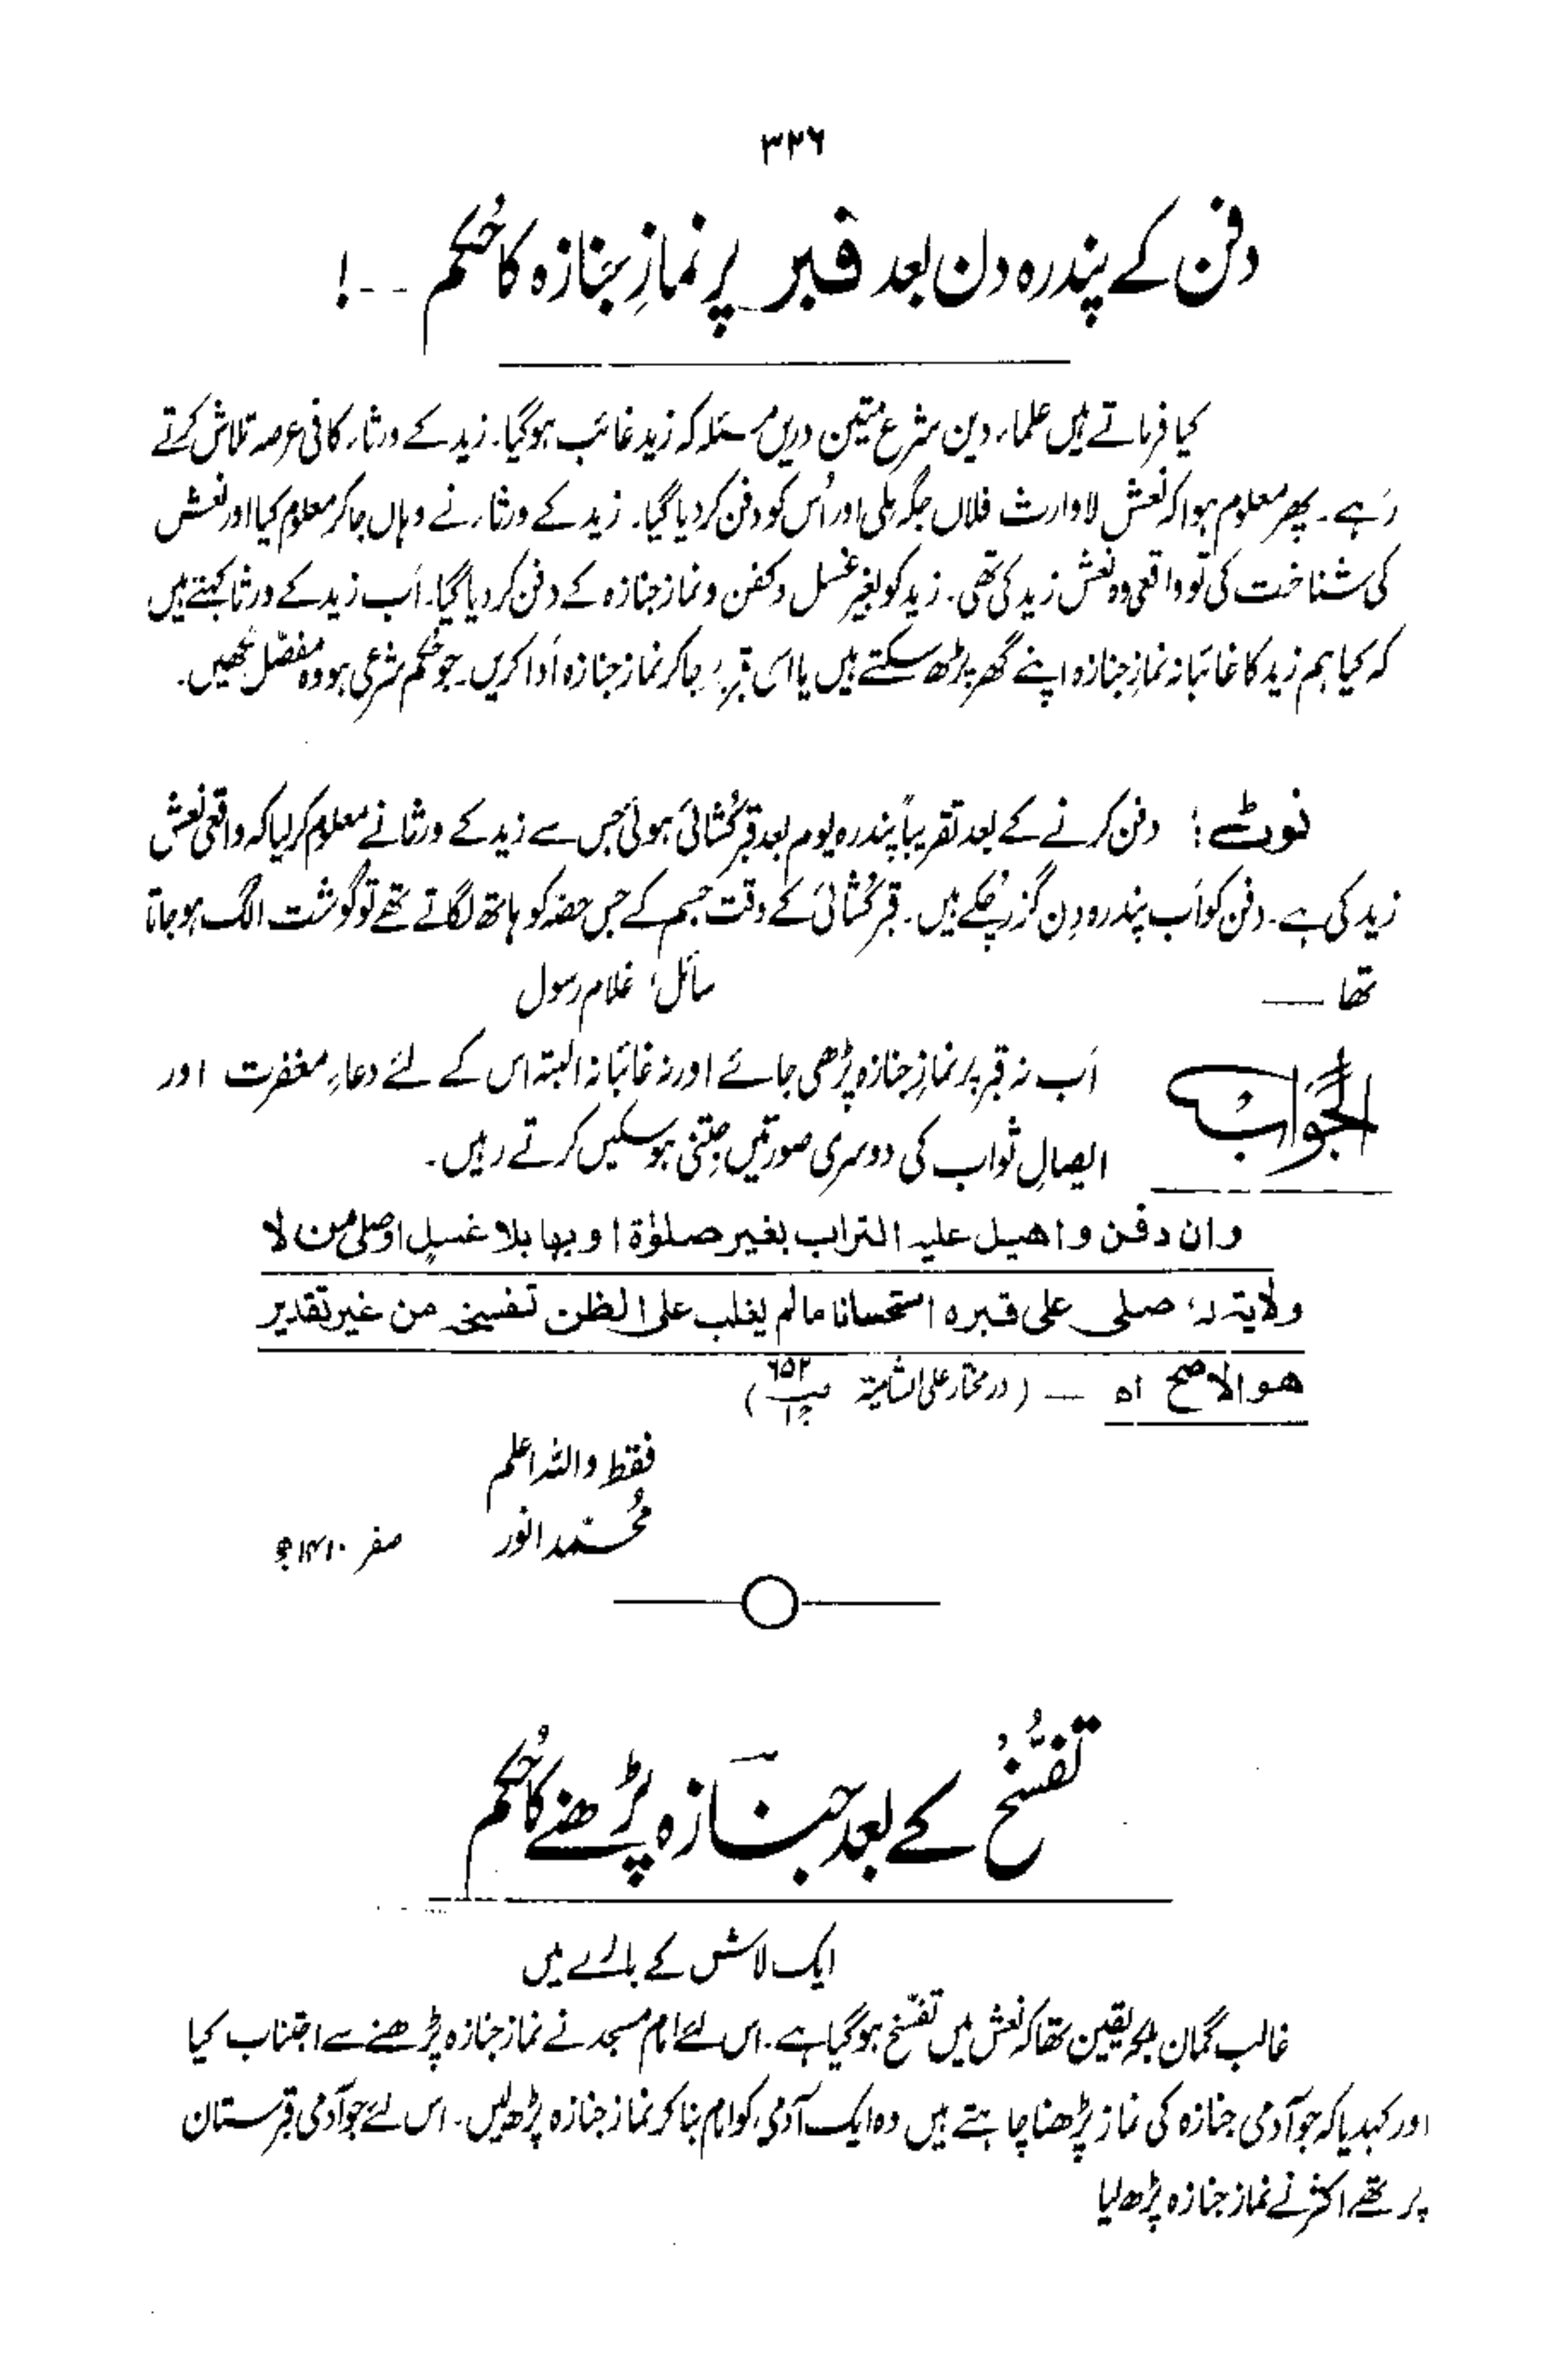 ۳۲۶
دفن کے پندرہ دن بعد قبر پر نمازِ جنازہ کا حُکم --!
کیا فرماتے ہیں علماء دین شرع متین دریں مسئلہ کہ زید غائب ہوگیا۔ زید کے ورثاء کافی عرصہ تلاش کرتے
رہے۔ پھر معلوم ہوا کہ نعش لاوارث فلاں جگہ ملی اور اُس کو دفن کر دیا گیا۔ زید کے ورثاء نے وہاں جا کر معلوم کیا اور نعش
کی شناخت کی تو واقعی وہ نعش زید کی تھی۔ زید کو بغیر غسل و کفن و نماز جنازہ کے دفن کر دیا گیا۔ اَب زید کے ورثا کہتے ہیں
کہ کیا ہم زید کا غائبانہ نمازِ جنازہ اپنے گھر پڑھ سکتے ہیں یا اس قبر پر جا کر نماز جنازہ اَدا کریں۔ جو حُکم شرعی ہو وہ مفصّل لکھیں۔
نوٹ: دفن کرنے کے بعد تقریباً پندرہ یوم بعد قبر کُشائی ہوئی جس سے زید کے ورثا نے معلوم کر لیا کہ واقعی نعش
زید کی ہے۔ دفن کو اَب پندرہ دِن گزر چُکے ہیں۔ قبر کُشائی کے وقت جسم کے جس حصّہ کو ہاتھ لگاتے تھے تو گوشت الگ ہو جاتا
تھا — سائل: غلام رسول
الجَوَاب اَب نہ قبر پر نمازِ جنازہ پڑھی جائے اور نہ غائبانہ البتہ اس کے لئے دعاءِ مغفرت اور
ایصالِ ثواب کی دوسری صورتیں جِتنی ہو سکیں کرتے رہیں۔
وان دفن واهيل عليه التراب بغير صلوٰة او بها بلا غسل او صلى من لا
ولاية له صلى على قبره استحسانا ما لم يغلب على الظن تفسخه من غير تقدير
هو الاصح اه — (در مختار علی الشامیة ص۶۵۲ ج۱)
فقط واللہ اعلم
مُحمّد انور صفر ۱۴۱۰ھ
تفسّخ کے بعد جنازہ پڑھنے کا حُکم
ایک لاش کے بارے میں
غالب گمان بلکہ یقین تھا کہ نعش میں تفسّخ ہوگیا ہے۔ اس لئے امام مسجد نے نماز جنازہ پڑھنے سے اجتناب کیا
اور کہدیا کہ جو آدمی جنازہ کی نماز پڑھنا چاہتے ہیں وہ ایک آدمی کو امام بنا کر نماز جنازہ پڑھ لیں۔ اس لئے جو آدمی قبرستان
پر تھے اکثر نے نماز جنازہ پڑھ لیا